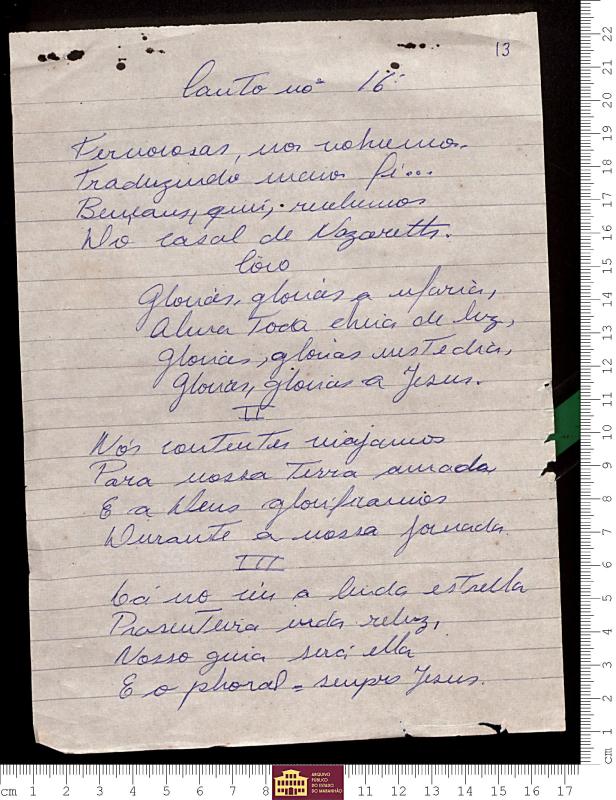 13
Canto nº 16
Fervorosas, nos volvemos
Traduzindo maior fé...
Bençans, qui, recebemos
Do casal de Nazareth.
Côro
Glorias, glorias a Maria,
Alma toda cheia de luz,
Glorias, glorias neste dia,
Glorias, glorias a Jesus.
II
Nós contentes viajamos
Para nossa terra amada
E a Deus glorificamos
Durante a nossa jornada
III
Lá no céu a linda estrella
Prasenteira inda reluz,
Nosso guia será ella
E o phoral = sempre Jesus.
ARQUIVO PÚBLICO DO ESTADO DO MARANHÃO
cm 1 2 3 4 5 6 7 8 11 12 13 14 15 16 17
cm 1 2 3 4 5 6 7 8 9 10 11 12 13 14 15 16 17 18 19 20 21 22